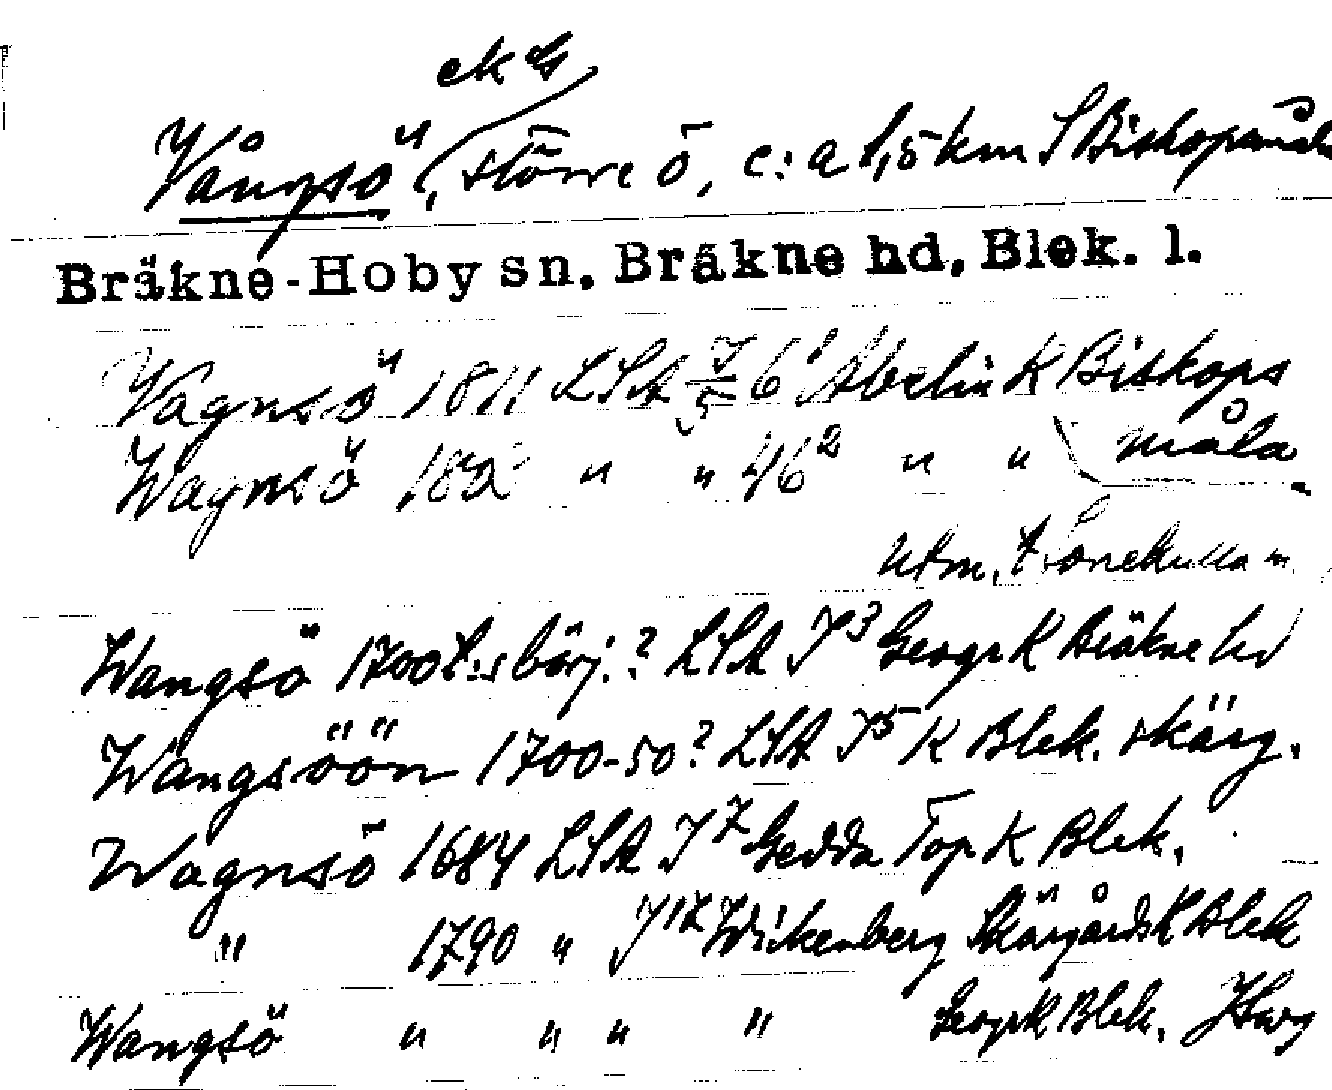 ek G
Vångsö, större ö, c:a 1,5 km S Biskopsmåla
Bräkne-Hoby sn. Bräkne hd, Blek. l.
Vagnsö 1811 LSA J/5 6¹ Abelin K Biskops
Wagnsö 182 " " 46² " " måla
utm.
Wangsö 1700 t:s börj.? LSA J³ Geogr K Bräkne hd
Wangsöön 1700-50? LSA J⁵ K Blek. skärg.
Wagnsö 1684 LSA J⁷ Gedda Top K Blek.
" 1790 " J¹⁷ Wickenberg Skärgårds K Blek
Wangsö " " " " Geogr K Blek.